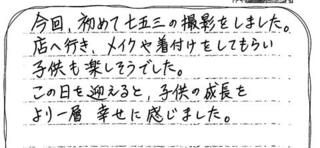 今回、初めて七五三の撮影をしました。
店へ行き、メイクや着付けをしてもらい
子供も楽しそうでした。
この日を迎えると、子供の成長を
より一層 幸せに感じました。